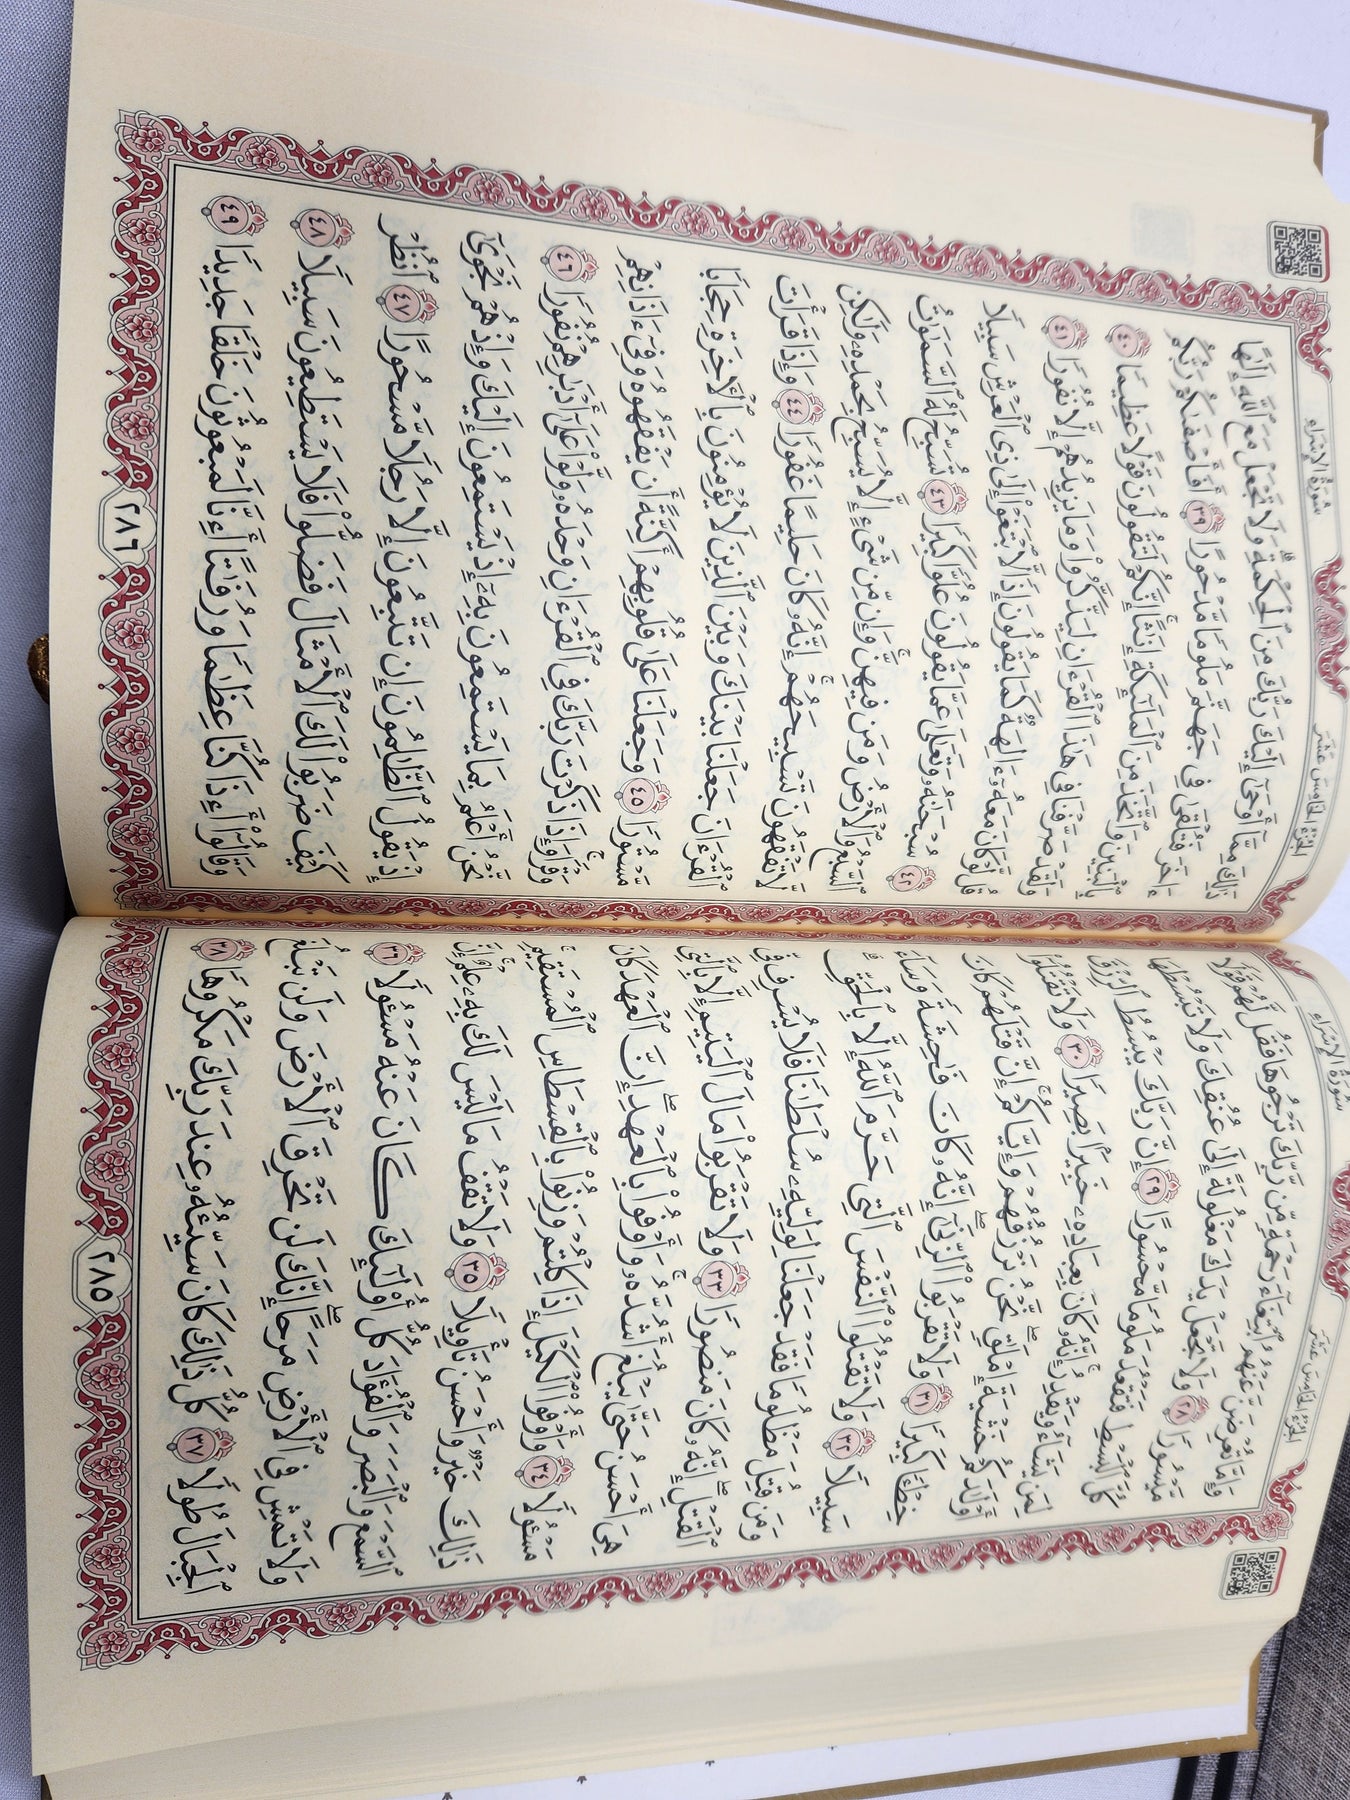 سُورَةُ الإِسْرَاءِ
الجُزْءُ الخَامِسَ عَشَرَ
وَإِمَّا تُعْرِضَنَّ عَنْهُمُ ٱبْتِغَآءَ رَحْمَةٍ مِّن رَّبِّكَ تَرْجُوهَا فَقُل لَّهُمْ قَوْلًا
مَّيْسُورًا ٢٨ وَلَا تَجْعَلْ يَدَكَ مَغْلُولَةً إِلَىٰ عُنُقِكَ وَلَا تَبْسُطْهَا
كُلَّ ٱلْبَسْطِ فَتَقْعُدَ مَلُومًا مَّحْسُورًا ٢٩ إِنَّ رَبَّكَ يَبْسُطُ ٱلرِّزْقَ
لِمَن يَشَآءُ وَيَقْدِرُ ۚ إِنَّهُۥ كَانَ بِعِبَادِهِۦ خَبِيرًۢا بَصِيرًا ٣٠ وَلَا تَقْتُلُوٓا۟
أَوْلَٰدَكُمْ خَشْيَةَ إِمْلَٰقٍ ۖ نَّحْنُ نَرْزُقُهُمْ وَإِيَّاكُمْ ۚ إِنَّ قَتْلَهُمْ كَانَ
خِطْـًٔا كَبِيرًا ٣١ وَلَا تَقْرَبُوا۟ ٱلزِّنَىٰٓ ۖ إِنَّهُۥ كَانَ فَٰحِشَةً وَسَآءَ
سَبِيلًا ٣٢ وَلَا تَقْتُلُوا۟ ٱلنَّفْسَ ٱلَّتِى حَرَّمَ ٱللَّهُ إِلَّا بِٱلْحَقِّ ۗ
وَمَن قُتِلَ مَظْلُومًا فَقَدْ جَعَلْنَا لِوَلِيِّهِۦ سُلْطَٰنًا فَلَا يُسْرِف فِّى
ٱلْقَتْلِ ۖ إِنَّهُۥ كَانَ مَنصُورًا ٣٣ وَلَا تَقْرَبُوا۟ مَالَ ٱلْيَتِيمِ إِلَّا بِٱلَّتِى
هِىَ أَحْسَنُ حَتَّىٰ يَبْلُغَ أَشُدَّهُۥ ۚ وَأَوْفُوا۟ بِٱلْعَهْدِ ۖ إِنَّ ٱلْعَهْدَ كَانَ
مَسْـُٔولًا ٣٤ وَأَوْفُوا۟ ٱلْكَيْلَ إِذَا كِلْتُمْ وَزِنُوا۟ بِٱلْقِسْطَاسِ ٱلْمُسْتَقِيمِ ۚ
ذَٰلِكَ خَيْرٌ وَأَحْسَنُ تَأْوِيلًا ٣٥ وَلَا تَقْفُ مَا لَيْسَ لَكَ بِهِۦ عِلْمٌ ۚ إِنَّ
ٱلسَّمْعَ وَٱلْبَصَرَ وَٱلْفُؤَادَ كُلُّ أُو۟لَٰٓئِكَ كَانَ عَنْهُ مَسْـُٔولًا ٣٦
وَلَا تَمْشِ فِى ٱلْأَرْضِ مَرَحًا ۖ إِنَّكَ لَن تَخْرِقَ ٱلْأَرْضَ وَلَن تَبْلُغَ
ٱلْجِبَالَ طُولًا ٣٧ كُلُّ ذَٰلِكَ كَانَ سَيِّئُهُۥ عِندَ رَبِّكَ مَكْرُوهًا ٣٨
٢٨٥
الجُزْءُ الخَامِسَ عَشَرَ
سُورَةُ الإِسْرَاءِ
ذَٰلِكَ مِمَّآ أَوْحَىٰٓ إِلَيْكَ رَبُّكَ مِنَ ٱلْحِكْمَةِ ۗ وَلَا تَجْعَلْ مَعَ ٱللَّهِ إِلَٰهًا
ءَاخَرَ فَتُلْقَىٰ فِى جَهَنَّمَ مَلُومًا مَّدْحُورًا ٣٩ أَفَأَصْفَىٰكُمْ رَبُّكُم
بِٱلْبَنِينَ وَٱتَّخَذَ مِنَ ٱلْمَلَٰٓئِكَةِ إِنَٰثًا ۚ إِنَّكُمْ لَتَقُولُونَ قَوْلًا عَظِيمًا ٤٠
وَلَقَدْ صَرَّفْنَا فِى هَٰذَا ٱلْقُرْءَانِ لِيَذَّكَّرُوا۟ وَمَا يَزِيدُهُمْ إِلَّا نُفُورًا ٤١
قُل لَّوْ كَانَ مَعَهُۥٓ ءَالِهَةٌ كَمَا يَقُولُونَ إِذًا لَّٱبْتَغَوْا۟ إِلَىٰ ذِى ٱلْعَرْشِ سَبِيلًا
٤٢ سُبْحَٰنَهُۥ وَتَعَٰلَىٰ عَمَّا يَقُولُونَ عُلُوًّا كَبِيرًا ٤٣ تُسَبِّحُ لَهُ ٱلسَّمَٰوَٰتُ
ٱلسَّبْعُ وَٱلْأَرْضُ وَمَن فِيهِنَّ ۚ وَإِن مِّن شَىْءٍ إِلَّا يُسَبِّحُ بِحَمْدِهِۦ وَلَٰكِن
لَّا تَفْقَهُونَ تَسْبِيحَهُمْ ۗ إِنَّهُۥ كَانَ حَلِيمًا غَفُورًا ٤٤ وَإِذَا قَرَأْتَ
ٱلْقُرْءَانَ جَعَلْنَا بَيْنَكَ وَبَيْنَ ٱلَّذِينَ لَا يُؤْمِنُونَ بِٱلْـَٔاخِرَةِ حِجَابًا
مَّسْتُورًا ٤٥ وَجَعَلْنَا عَلَىٰ قُلُوبِهِمْ أَكِنَّةً أَن يَفْقَهُوهُ وَفِىٓ ءَاذَانِهِمْ
وَقْرًا ۚ وَإِذَا ذَكَرْتَ رَبَّكَ فِى ٱلْقُرْءَانِ وَحْدَهُۥ وَلَّوْا۟ عَلَىٰٓ أَدْبَٰرِهِمْ نُفُورًا ٤٦
نَّحْنُ أَعْلَمُ بِمَا يَسْتَمِعُونَ بِهِۦٓ إِذْ يَسْتَمِعُونَ إِلَيْكَ وَإِذْ هُمْ نَجْوَىٰٓ
إِذْ يَقُولُ ٱلظَّٰلِمُونَ إِن تَتَّبِعُونَ إِلَّا رَجُلًا مَّسْحُورًا ٤٧ ٱنظُرْ
كَيْفَ ضَرَبُوا۟ لَكَ ٱلْأَمْثَالَ فَضَلُّوا۟ فَلَا يَسْتَطِيعُونَ سَبِيلًا ٤٨
وَقَالُوٓا۟ أَءِذَا كُنَّا عِظَٰمًا وَرُفَٰتًا أَءِنَّا لَمَبْعُوثُونَ خَلْقًا جَدِيدًا ٤٩
٢٨٦